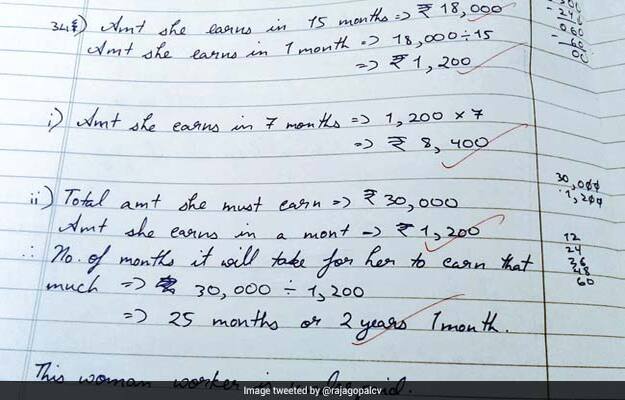 34) Amt she earns in 15 months => ₹ 18,000
Amt she earns in 1 month => 18,000÷15
=> ₹ 1,200
i) Amt she earns in 7 months => 1,200 x 7
=> ₹ 8,400
ii) Total amt she must earn => ₹ 30,000
Amt she earns in a mont => ₹ 1,200
∴ No. of months it will take for her to earn that
much => 30,000 ÷ 1,200
=> 25 months or 2 years 1 month.
This woman worker is
30,000
1,200
12
24
36
48
60
Image tweeted by @rajagopalcv